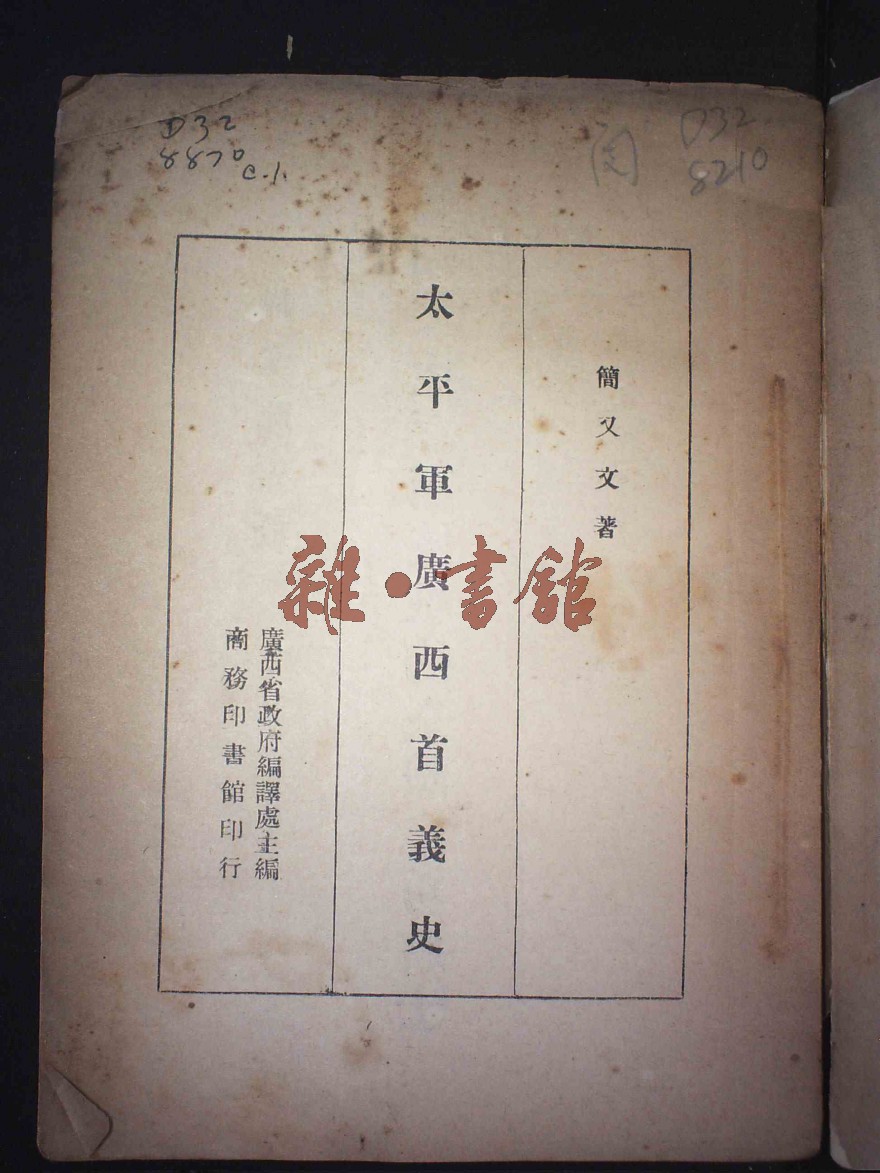 D32
8870
c.1.
D32
8210
簡又文著
太平軍廣西首義史
廣西省政府編譯處主編
商務印書館印行
雜·書館